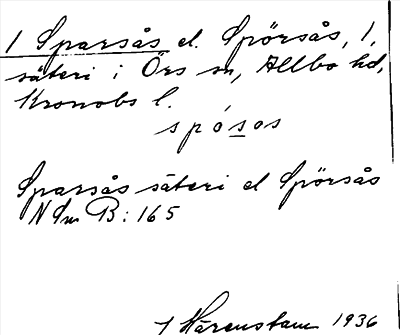 1 Sparsås el. Spörsås, 1,
säteri i Örs sn, Allbo hd,
Kronobs l.
spósos
Sparsås säteri el Spörsås
N Sm B: 165
Hårenstam 1936